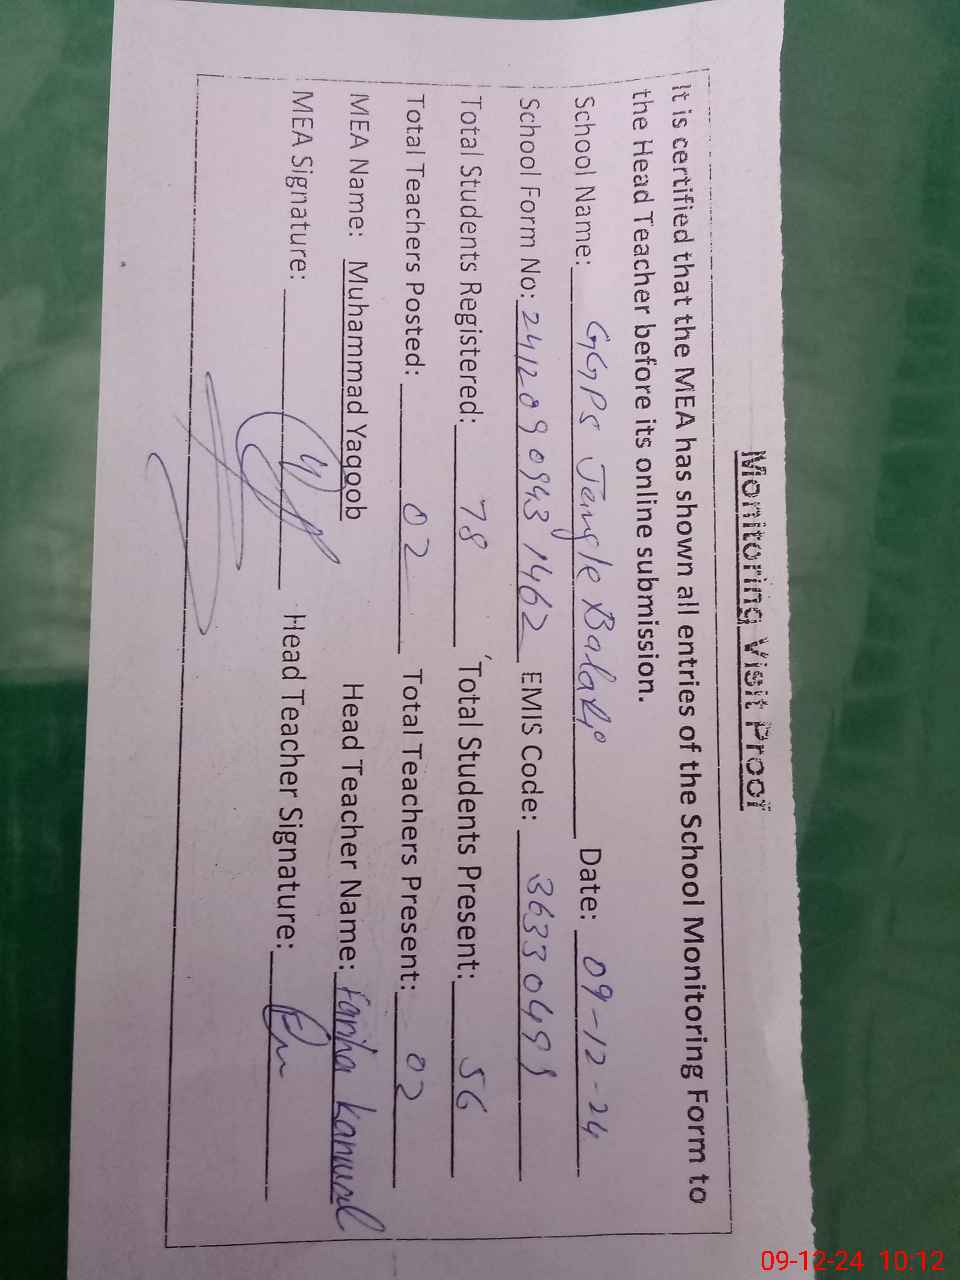 Monitoring Visit Proof
It is certified that the MEA has shown all entries of the School Monitoring Form to
the Head Teacher before its online submission.
School Name: GGPS Jangle Balaki Date: 09-12-24
School Form No: 241209 0943 1462 EMIS Code:
Total Students Registered: 78 Total Students Present: 56
Total Teachers Posted: 02 Total Teachers Present: 02
MEA Name: Muhammad Yaqoob Head Teacher Name: Kanwal
MEA Signature: Head Teacher Signature:
09-12-24 10:12